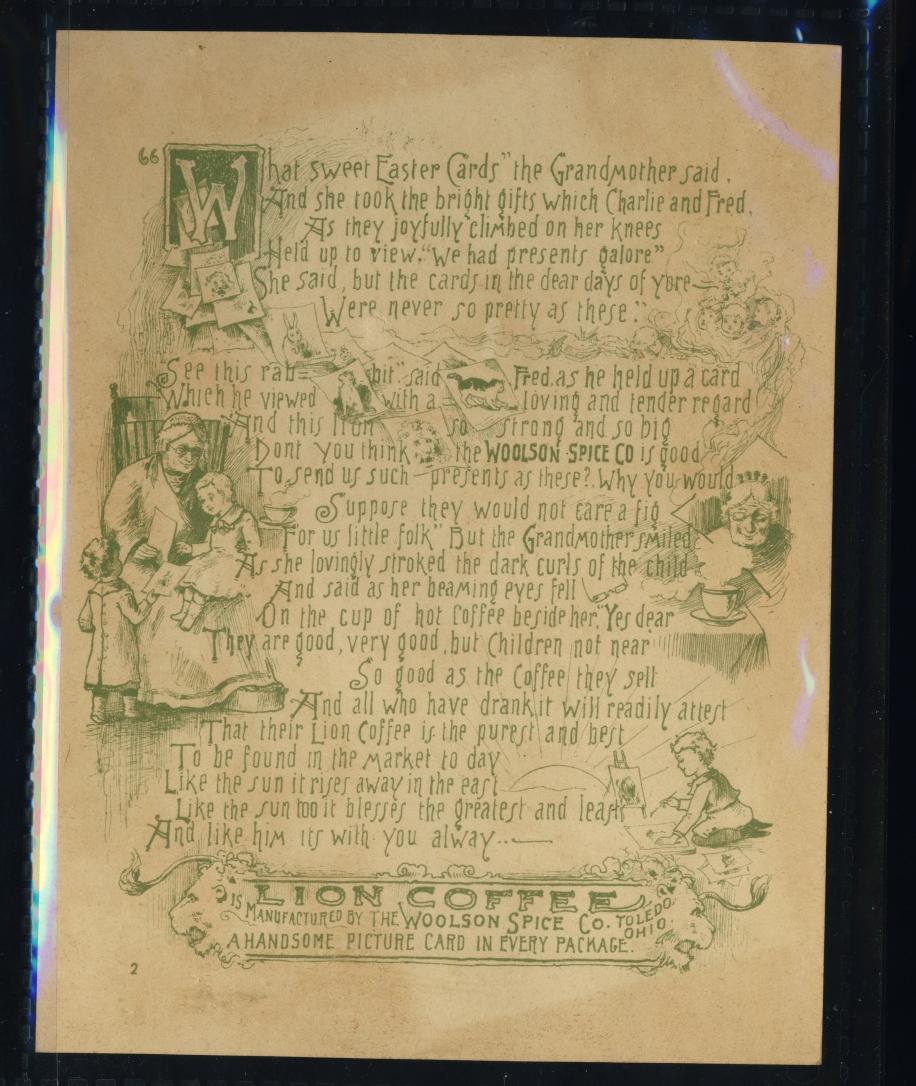 "What sweet Easter Cards" the Grandmother said,
And she took the bright gifts which Charlie and Fred,
As they joyfully climbed on her knees
Held up to view, "We had presents galore"
She said, but the cards in the dear days of yore
Were never so pretty as these."
See this rab=bit" said Fred. as he held up a card
Which he viewed with a loving and tender regard
And this lion so strong and so big
Dont you think the WOOLSON SPICE CO is good
To send us such presents as these? Why you would
Suppose they would not care a fig
For us little folk" But the Grandmother smiled
As she lovingly stroked the dark curls of the child
And said as her beaming eyes fell
On the cup of hot Coffee beside her, "Yes dear
They are good, very good, but Children not near
So good as the Coffee they sell
And all who have drank it will readily attest
That their Lion Coffee is the purest and best
To be found in the market to day
Like the sun it rises away in the east
Like the sun too it blesses the greatest and least
And, like him its with you alway..—
LION COFFEE
IS MANUFACTURED BY THE WOOLSON SPICE CO. TOLEDO OHIO.
A HANDSOME PICTURE CARD IN EVERY PACKAGE.
2